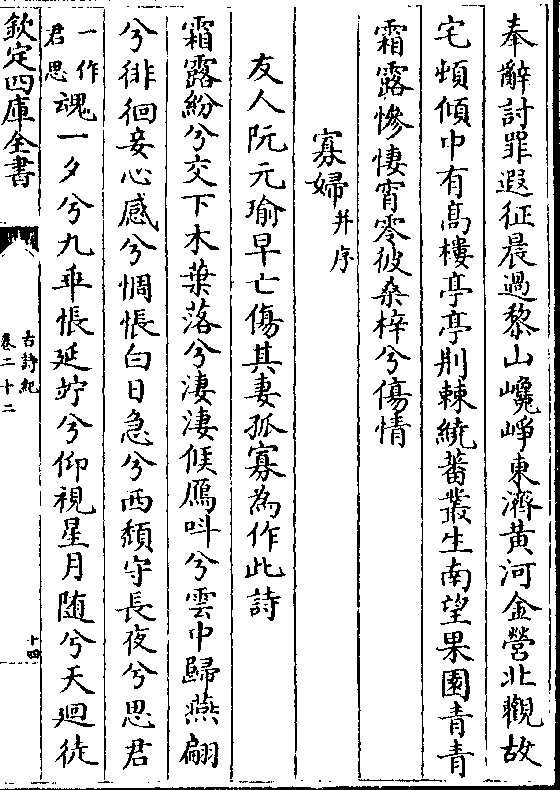 奉辭討罪遐征晨過黎山巉崢東濟黃河金營北觀故
宅頓傾中有高樓亭亭荆棘繞蕃叢生南望果園青青
霜露慘悽宵零彼桑梓兮傷情
寡婦并序
友人阮元瑜早亡傷其妻孤寡為作此詩
霜露紛兮交下木葉落兮淒淒候鴈呌兮雲中歸燕翩
兮徘徊妾心感兮惆悵白日急兮西頹守長夜兮思君
一作君思魂一夕兮九乖悵延竚兮仰視星月随兮天迴徒
欽定四庫全書
古詩紀
卷二十二
十四